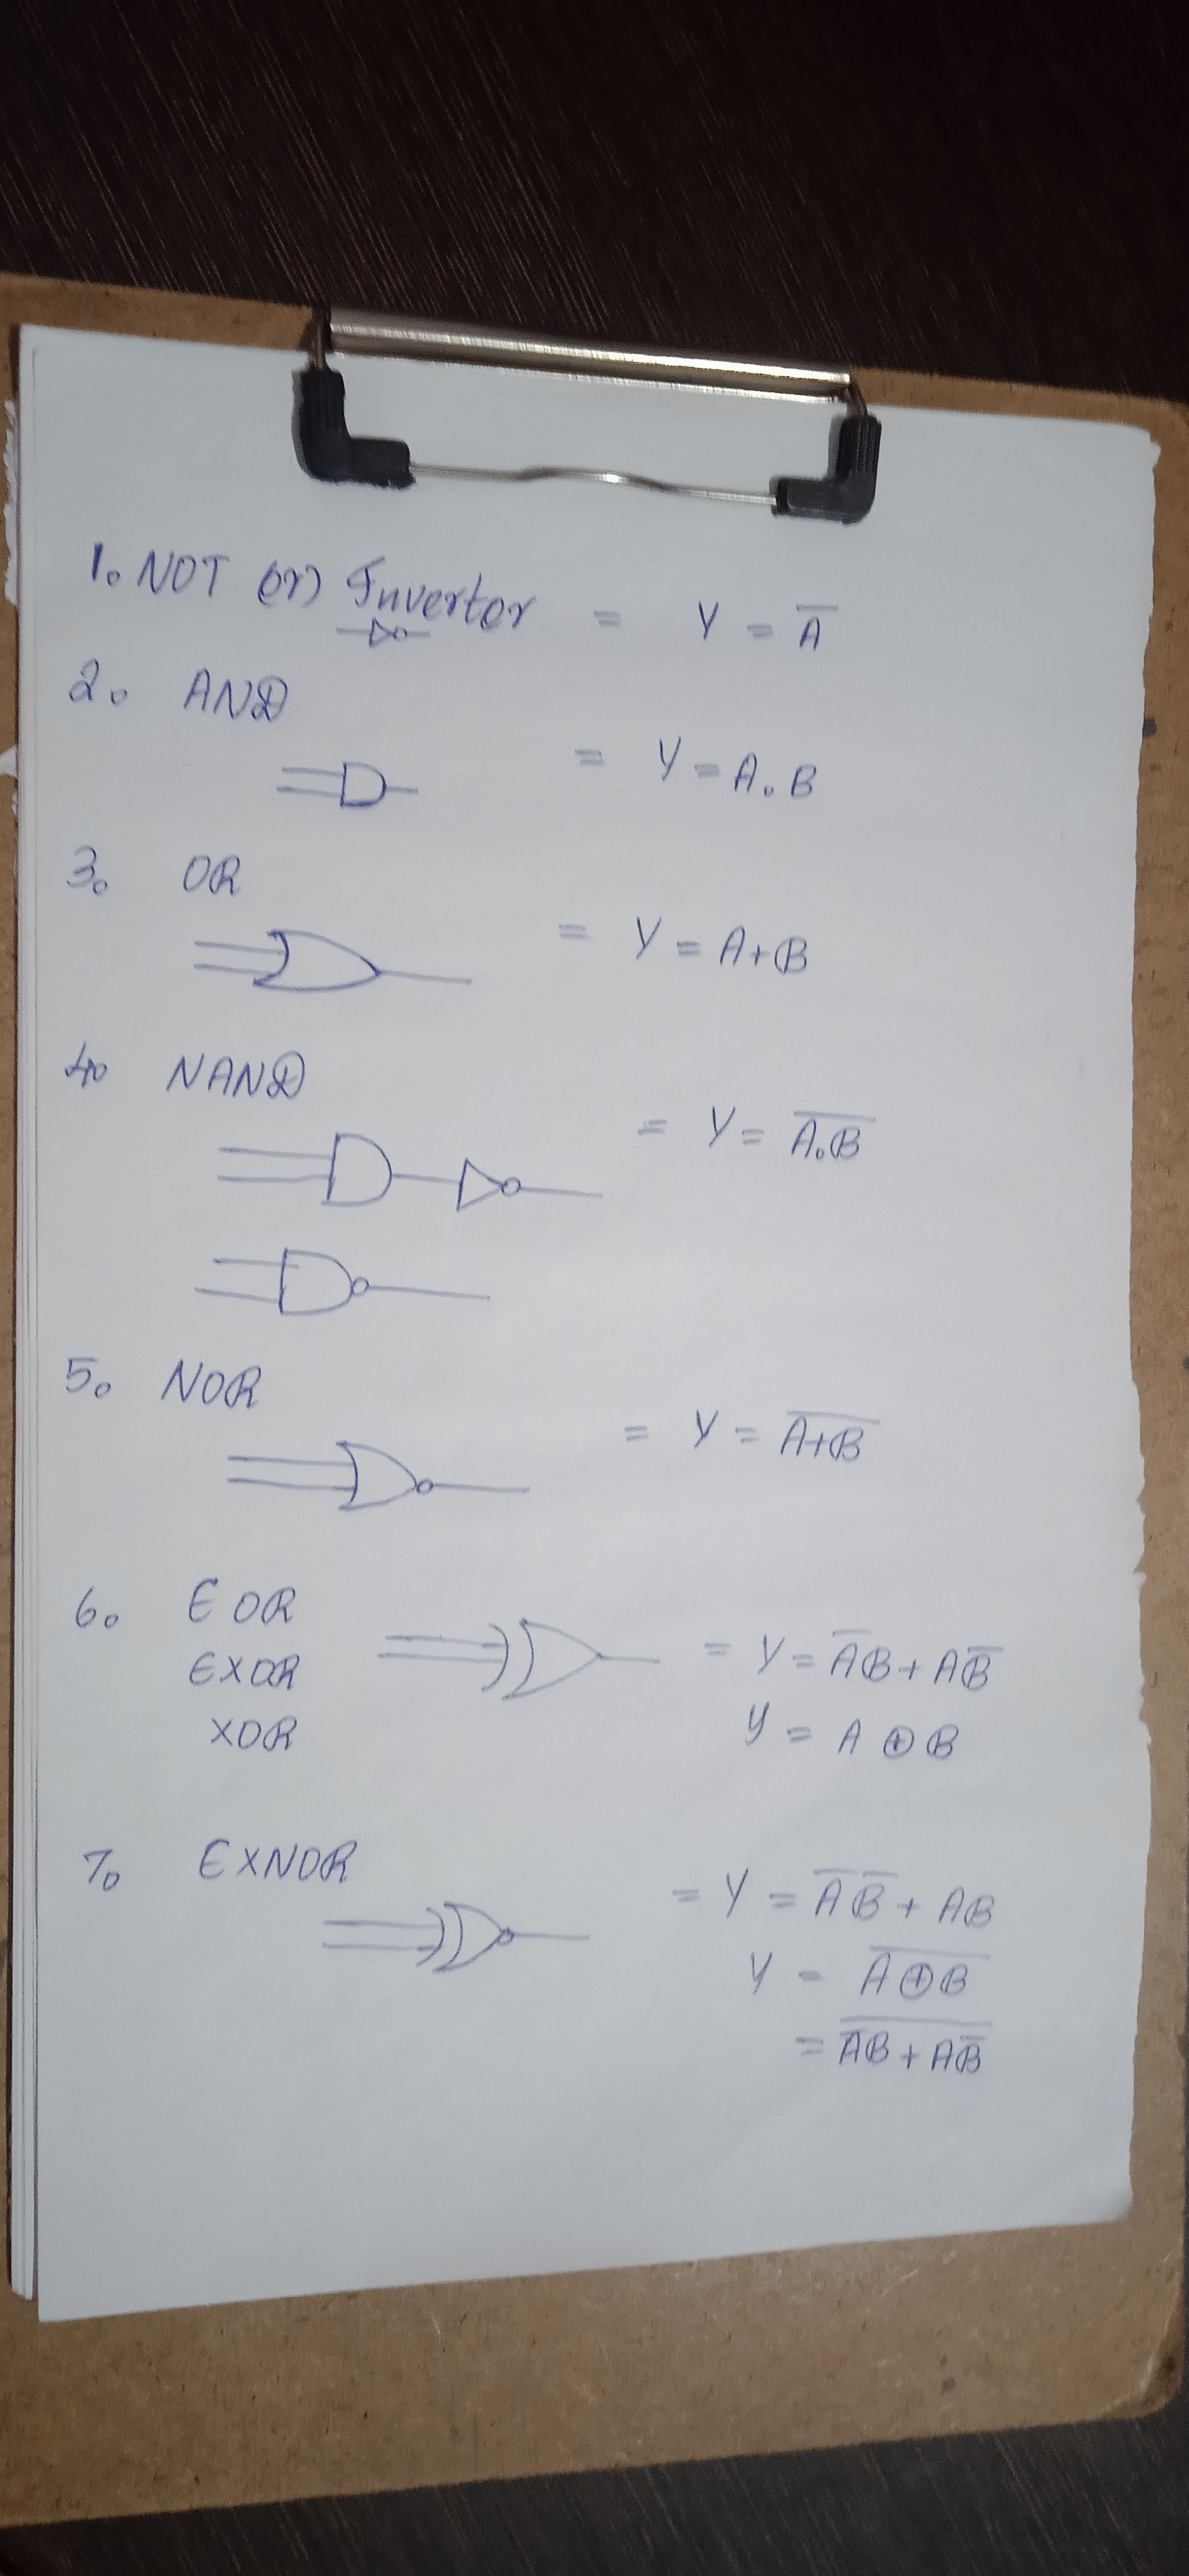 1. NOT (or) Invertor = Y = A̅
2. AND
= Y = A.B
3. OR
= Y = A+B
4. NAND
= Y = A̅.̅B̅
5. NOR
= Y = A̅+̅B̅
6. EOR = Y = A̅B + AB̅
EXOR
XOR Y = A ⊕ B
7. EXNOR
= Y = A̅ B̅ + AB
Y = A̅⊕̅B̅
= \overline{A̅B + AB̅}